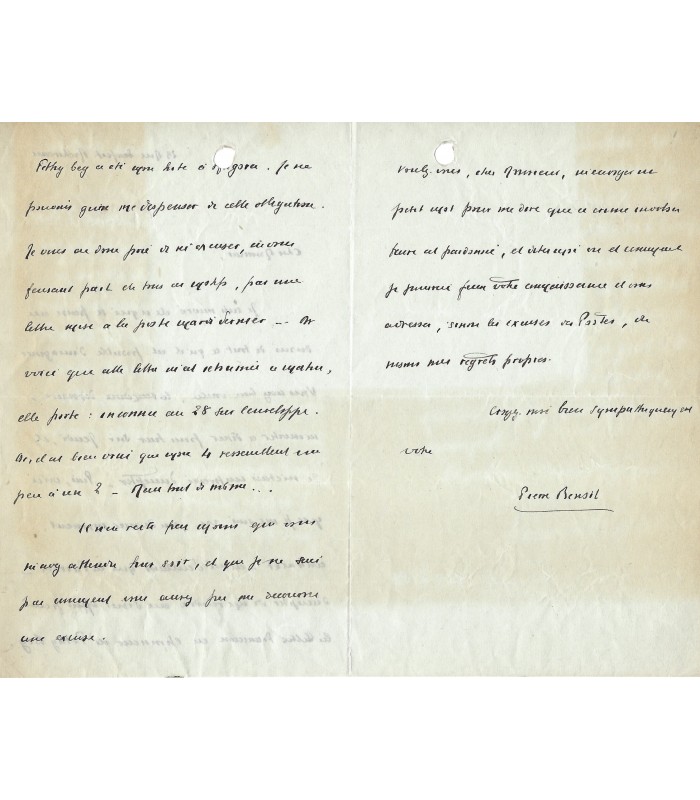 Fethy bey a été mon hôte à Angora. Je ne
pouvais guère me dispenser de cette obligation.
Je vous ai donc prié de m'excuser, en vous
faisant part de tous ces motifs, par une
lettre mise à la poste mardi dernier --- Or
voici que cette lettre m'est retournée ce matin,
elle porte : inconnu au 28 sur l'enveloppe.
Or, il est bien vrai que mon 4 ressemblent un
peu à un 2 - Mais tout de même...
Il n'en reste pas moins que vous
m'avez attendu hier soir, et que je ne sais
pas comment vous aurez pu me découvrir
une excuse.
Voulez-vous, cher Monsieur, m'envoyer un
petit mot pour me dire que ce crime involon
taire est pardonné, et où et comment
je pourrai faire votre connaissance et vous
adresser, sinon les excuses des Postes, du
moins mes regrets propres.
Croyez-moi bien sympathiquement
votre
Pierre Benoit